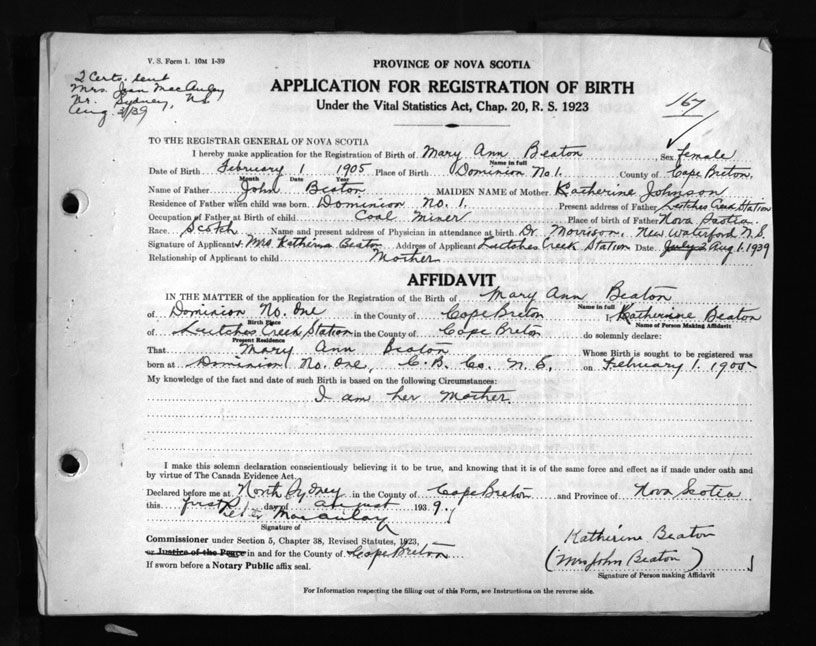 V. S. Form 1. 10M 1-39
2 Certs. sent
Mrs. Joan MacAulay
Nr. Sydney, NS
Aug. 3/39
PROVINCE OF NOVA SCOTIA
APPLICATION FOR REGISTRATION OF BIRTH
Under the Vital Statistics Act, Chap. 20, R. S. 1923
167
TO THE REGISTRAR GENERAL OF NOVA SCOTIA
I hereby make application for the Registration of Birth of Mary Ann Beaton, Sex female
Name in full
Date of Birth February 1 1905 Place of Birth Dominion No 1. County of Cape Breton.
Month Date Year
Name of Father John Beaton MAIDEN NAME of Mother Katherine Johnson
Residence of Father when child was born. Dominion No. 1. Present address of Father Leitches Creek Station
Occupation of Father at Birth of child Coal Miner Place of birth of Father Nova Scotia.
Race. Scotch Name and present address of Physician in attendance at birth. Dr. Morrison, New Waterford N.S.
Signature of Applicant Mrs Katherine Beaton Address of Applicant Leitches Creek Station Date July Aug 1. 1939
Relationship of Applicant to child Mother
AFFIDAVIT
IN THE MATTER of the application for the Registration of the Birth of Mary Ann Beaton
Name in full
of Dominion No. One in the County of Cape Breton I, Katherine Beaton
Birth Place Name of Person Making Affidavit
of Leitches Creek Station in the County of Cape Breton do solemnly declare:
Present Residence
That Mary Ann Beaton Whose Birth is sought to be registered was
born at Dominion No. One, C. B. Co. N. S. on February 1. 1905
My knowledge of the fact and date of such Birth is based on the following Circumstances:
I am her Mother.
I make this solemn declaration conscientiously believing it to be true, and knowing that it is of the same force and effect as if made under oath and
by virtue of The Canada Evidence Act.
Declared before me at North Sydney in the County of Cape Breton and Province of Nova Scotia
this first day of August 1939.
MacAulay
Signature of
Commissioner under Section 5, Chapter 38, Revised Statutes, 1923,
or Justice of the Peace in and for the County of Cape Breton
If sworn before a Notary Public affix seal.
Katherine Beaton
(Mrs John Beaton)
Signature of Person making Affidavit
For Information respecting the filling out of this Form, see Instructions on the reverse side.